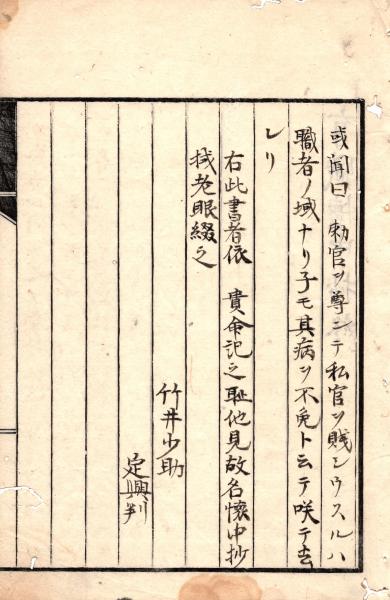 或聞曰 勅官ヲ尊ンテ私官ヲ賎シウスルハ
職者ノ域ナリ子モ其病ヲ不免ト云テ咲テ去
レリ
右此書者依 貴命記之耻他見故名懐中抄
拭老眼綴之
竹井少助
定興判